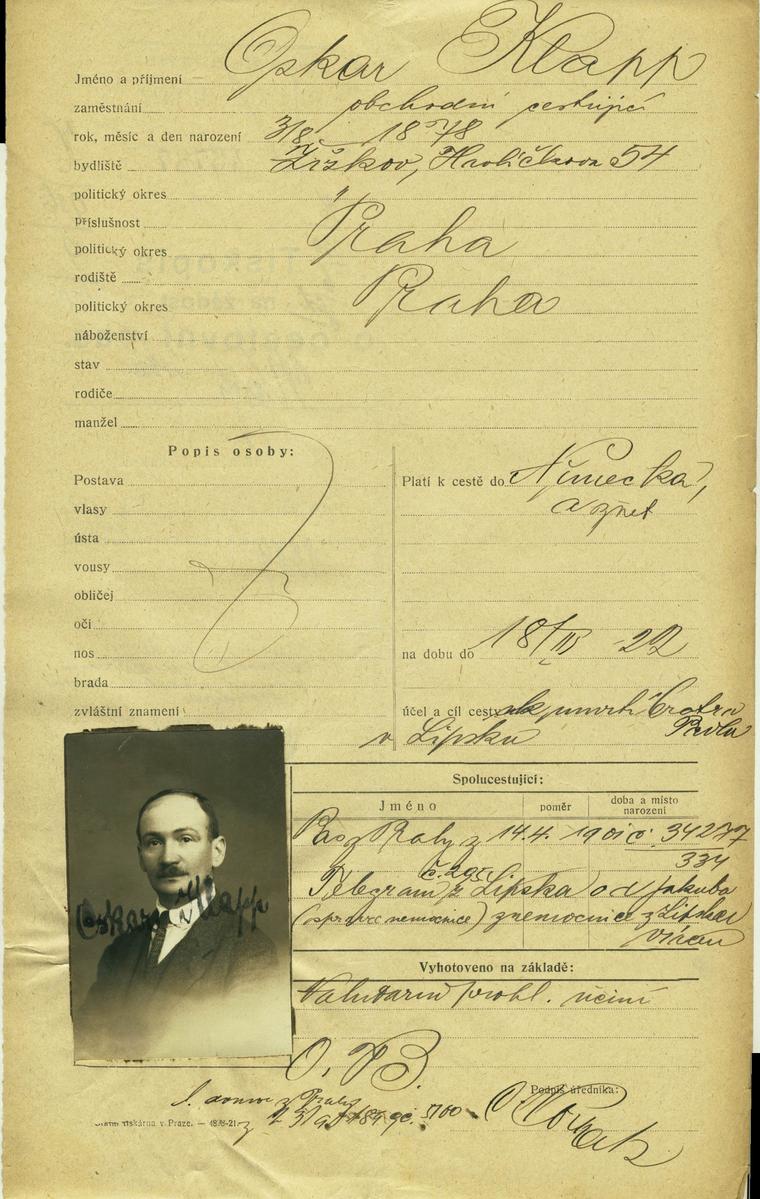 Jméno a příjmení Oskar Klapp
zaměstnání obchodní cestující
rok, měsíc a den narození 3/8 1878
bydliště Žižkov, Havlíčkova 54
politický okres "
příslušnost Praha
politický okres
rodiště Praha
politický okres
náboženství
stav
rodiče
manžel
Popis osoby:
Postava
vlasy
ústa
vousy
obličej
oči
nos
brada
zvláštní znamení
Platí k cestě do Německa,
a zpět
na dobu do 18/III 22
účel a cíl cesty k úmrtí bratra
Pavla
v Lipsku
Spolucestující:
Jméno poměr doba a místo narození
14.4. 19 č. 34277
334
Telegram z Lipska od Jakuba
(správce nemocnice) z nemocnice z Lipska
Oskar Klapp
Vyhotoveno na základě:
učiní
O. B.
Podpis úředníka:
Státní tiskárna v Praze. —